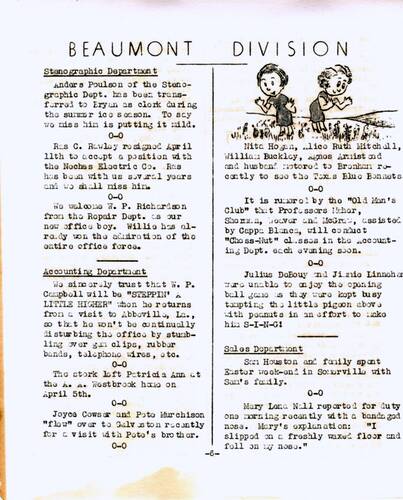 BEAUMONT DIVISION
Stenographic Department
Anders Poulson of the Steno-
graphic Dept. has been trans-
ferred to Bryan as clerk during
the summer ice season. To say
we miss him is putting it mild.
0-0
Ras C. Rawley resigned April
11th to accept a position with
the Neches Electric Co. Ras
has been with us several years
and we shall miss him.
0-0
We welcome W. P. Richardson
from the Repair Dept. as our
new office boy. Willie has al-
ready won the admiration of the
entire office force.
Accounting Department
We sincerely trust that W. P.
Campbell will be "STEPPIN' A
LITTLE HIGHER" when he returns
from a visit to Abbeville, La.,
so that he won't be continually
disturbing the office by stumb-
ling over gem clips, rubber
bands, telephone wires, etc.
0-0
The stork left Patricia Ann at
the A. A. Westbrook home on
April 5th.
0-0
Joyce Cowser and Pete Murchison
"flew" over to Galveston recently
for a visit with Pete's brother.
0-0
Nita Hogan, Alice Ruth Mitchell,
William Buckley, Agnes Armistead
and husband motored to Brenham re-
cently to see the Texas Blue Bonnets
0-0
It is rumored by the "Old Men's
Club" that Professors Maher,
Shannon, Weaver and McGraw, assisted
by Cappa Blanca, will conduct
"Chess-Nut" classes in the Account-
ing Dept. each evening soon.
0-0
Julius DeBouy and Jimmie Linnehan
were unable to enjoy the opening
ball game as they were kept busy
tempting the little pigeon above
with peanuts in an effort to make
him S-I-N-G!
Sales Department
Sam Houston and family spent
Easter week-end in Somerville with
Sam's family.
0-0
Mary Lena Nall reported for duty
one morning recently with a bandaged
nose. Mary's explanation: "I
slipped on a freshly waxed floor and
fell on my nose."
-6-